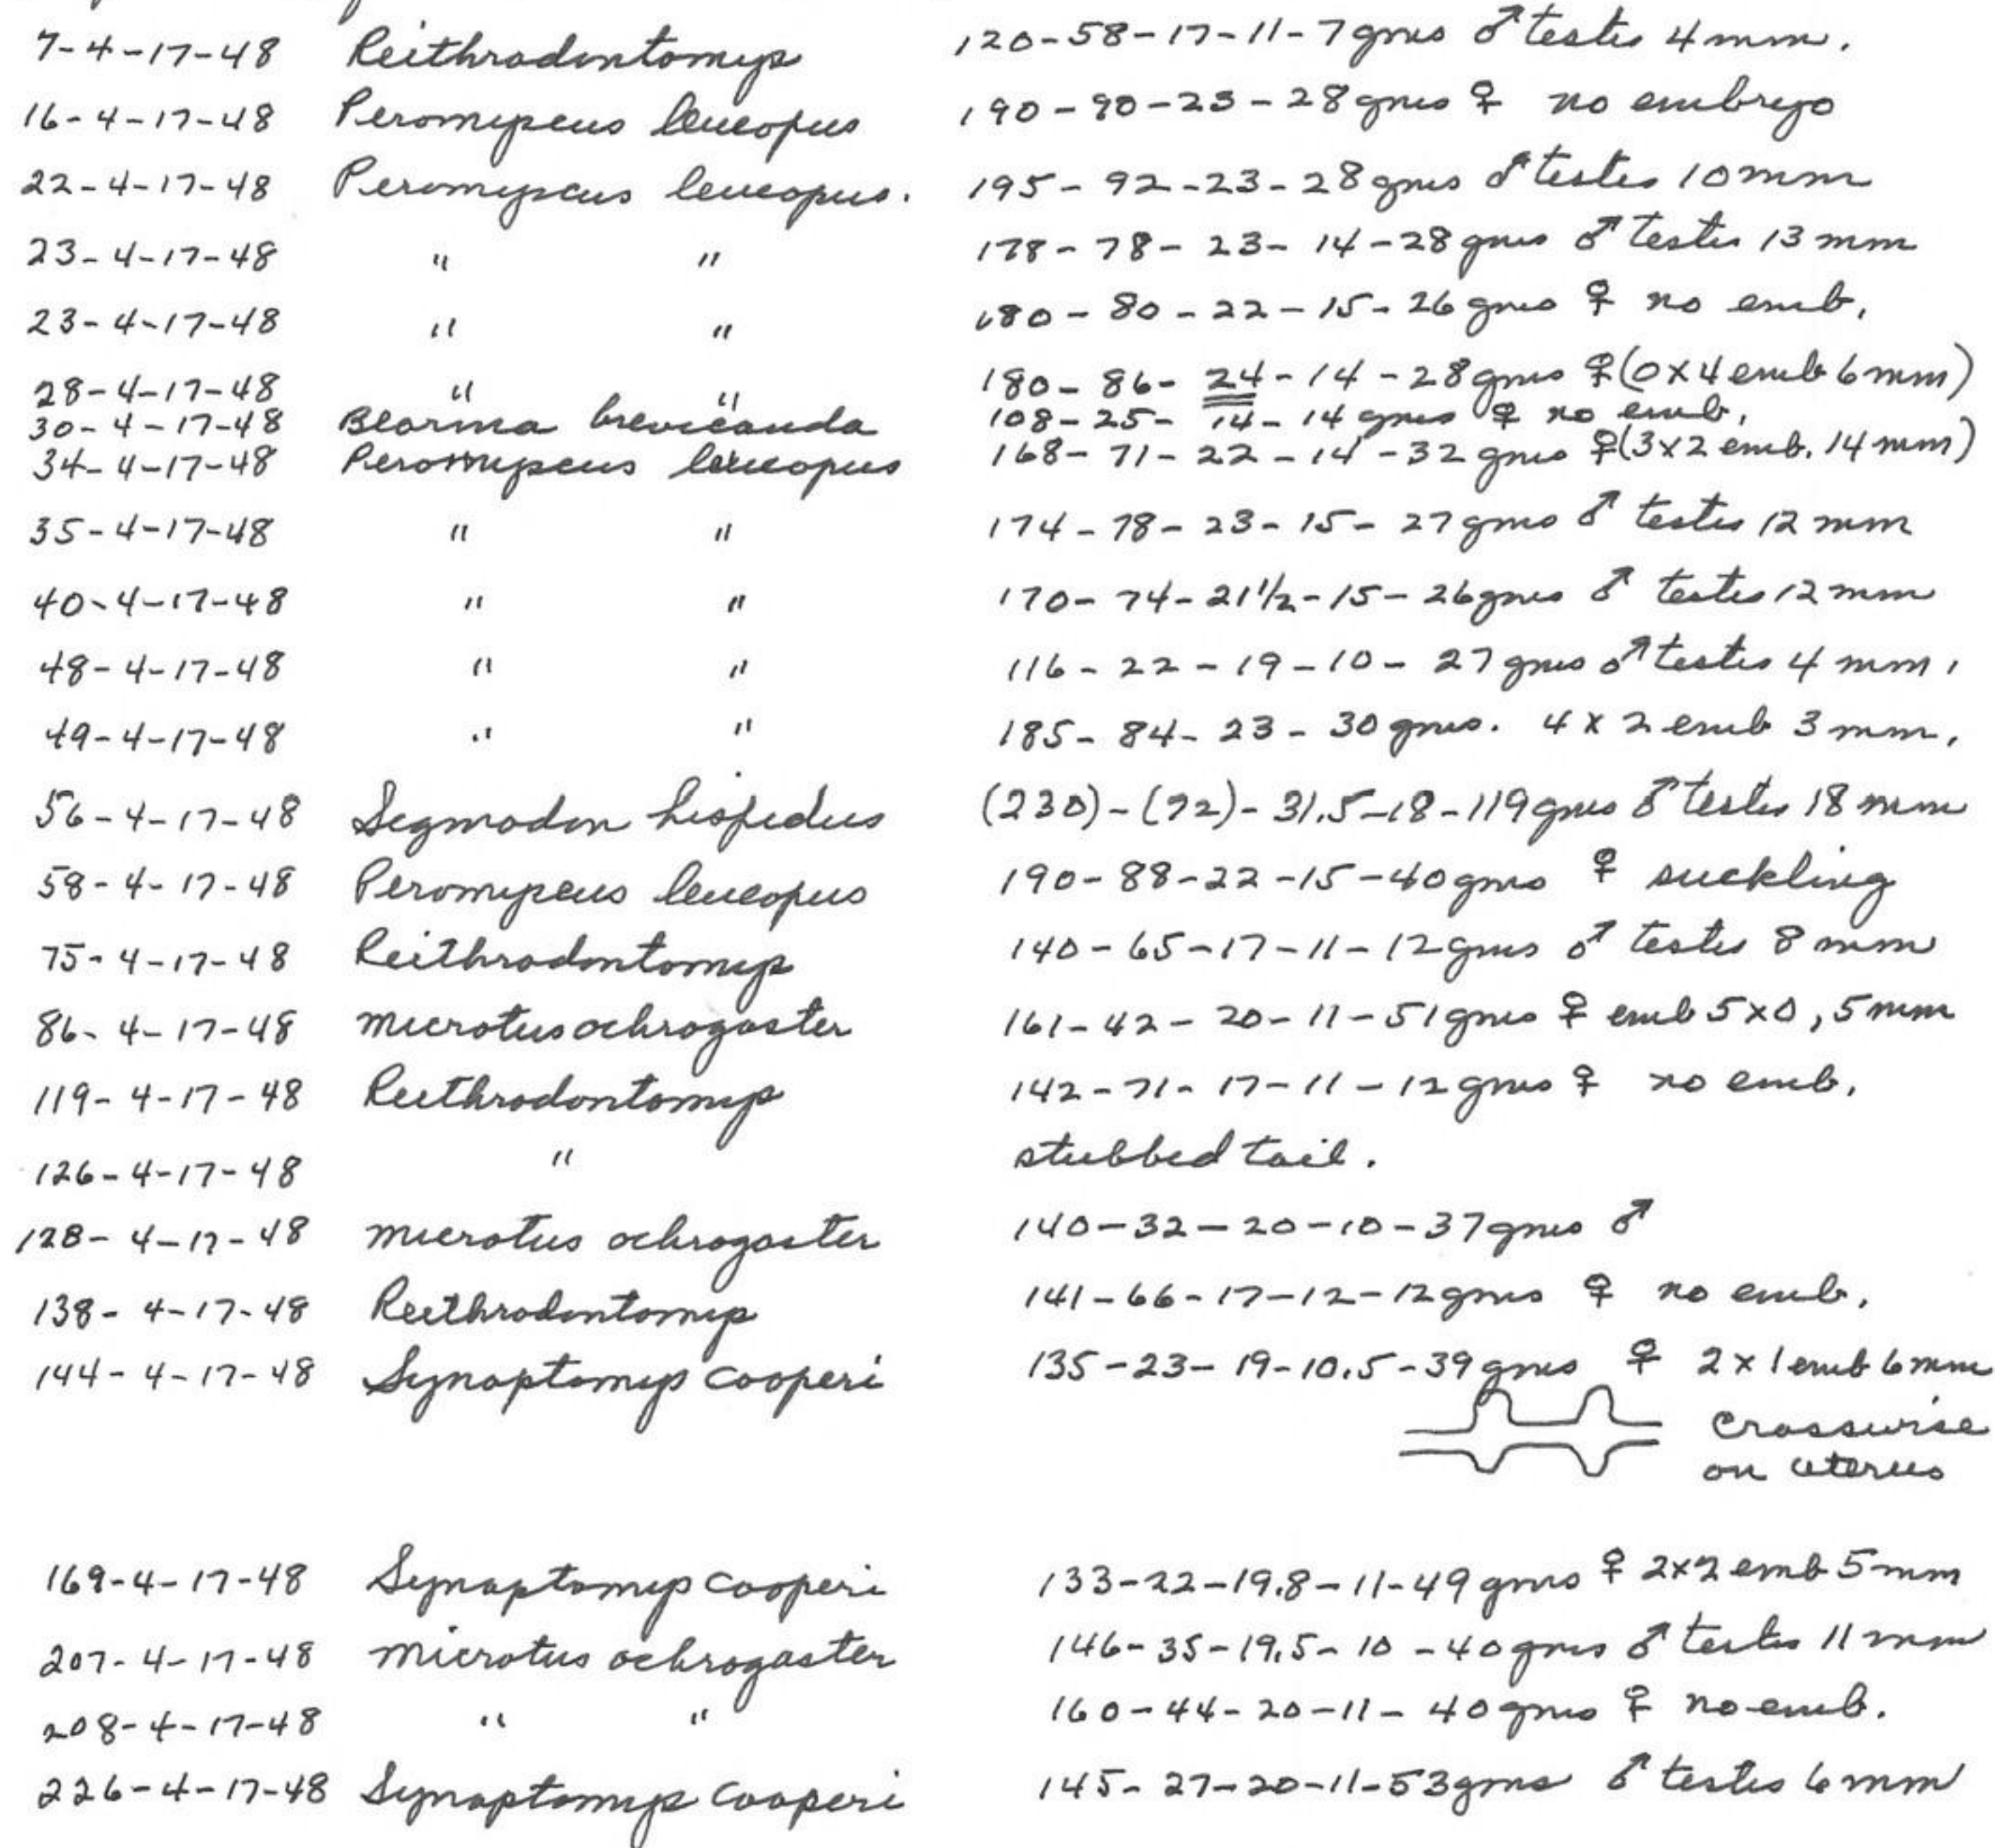 7-4-17-48 Reithrodontomys 120-58-17-11-7gms ♂ testis 4mm.
16-4-17-48 Peromyscus leucopus 190-90-23-28gms ♀ no embryo
22-4-17-48 Peromyscus leucopus. 195-92-23-28gms ♂ testes 10mm
23-4-17-48 " " 178-78-23-14-28gms ♂ testis 13mm
23-4-17-48 " " 180-80-22-15-26gms ♀ no emb.
28-4-17-48 " " 180-86-24-14-28gms ♀(0x4 emb 6mm)
30-4-17-48 Blarina brevicauda 108-25-14-14gms ♀ no emb.
34-4-17-48 Peromyscus leucopus 168-71-22-14-32gms ♀(3x2 emb. 14mm)
35-4-17-48 " " 174-78-23-15-27gms ♂ testes 12mm
40-4-17-48 " " 170-74-21½-15-26gms ♂ testes 12mm
48-4-17-48 " " 116-22-19-10-27gms ♂ testes 4mm.
49-4-17-48 " " 185-84-23-30gms. 4x2 emb 3mm.
56-4-17-48 Sigmodon hispidus (230)-(92)-31.5-18-119gms ♂ testes 18mm
58-4-17-48 Peromyscus leucopus 190-88-22-15-40gms ♀ suckling
75-4-17-48 Reithrodontomys 140-65-17-11-12gms ♂ testes 8mm
86-4-17-48 microtus ochrogaster 161-42-20-11-51gms ♀ emb 5x0, 5mm
119-4-17-48 Reithrodontomys 142-71-17-11-12gms ♀ no emb.
126-4-17-48 " stubbed tail.
128-4-17-48 microtus ochrogaster 140-32-20-10-37gms ♂
138-4-17-48 Reithrodontomys 141-66-17-12-12gms ♀ no emb.
144-4-17-48 Synaptomys cooperi 135-23-19-10.5-39gms ♀ 2x1 emb 6mm
crosswise
on uterus
169-4-17-48 Synaptomys cooperi 133-22-19.8-11-49gms ♀ 2x2 emb 5mm
207-4-17-48 microtus ochrogaster 146-35-19.5-10-40gms ♂ testes 11mm
208-4-17-48 " " 160-44-20-11-40gms ♀ no emb.
226-4-17-48 Synaptomys cooperi 145-27-20-11-53gms ♂ testes 6mm